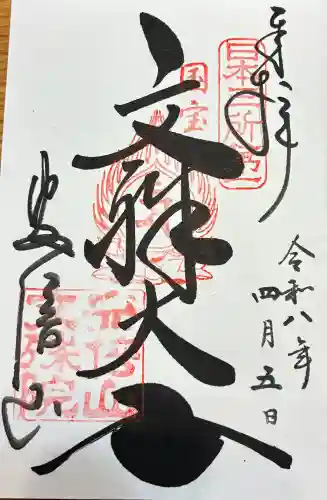 奉拝
日本三所第一
国宝
令和八年
四月五日
文殊大士
安倍山
安倍山
文殊院